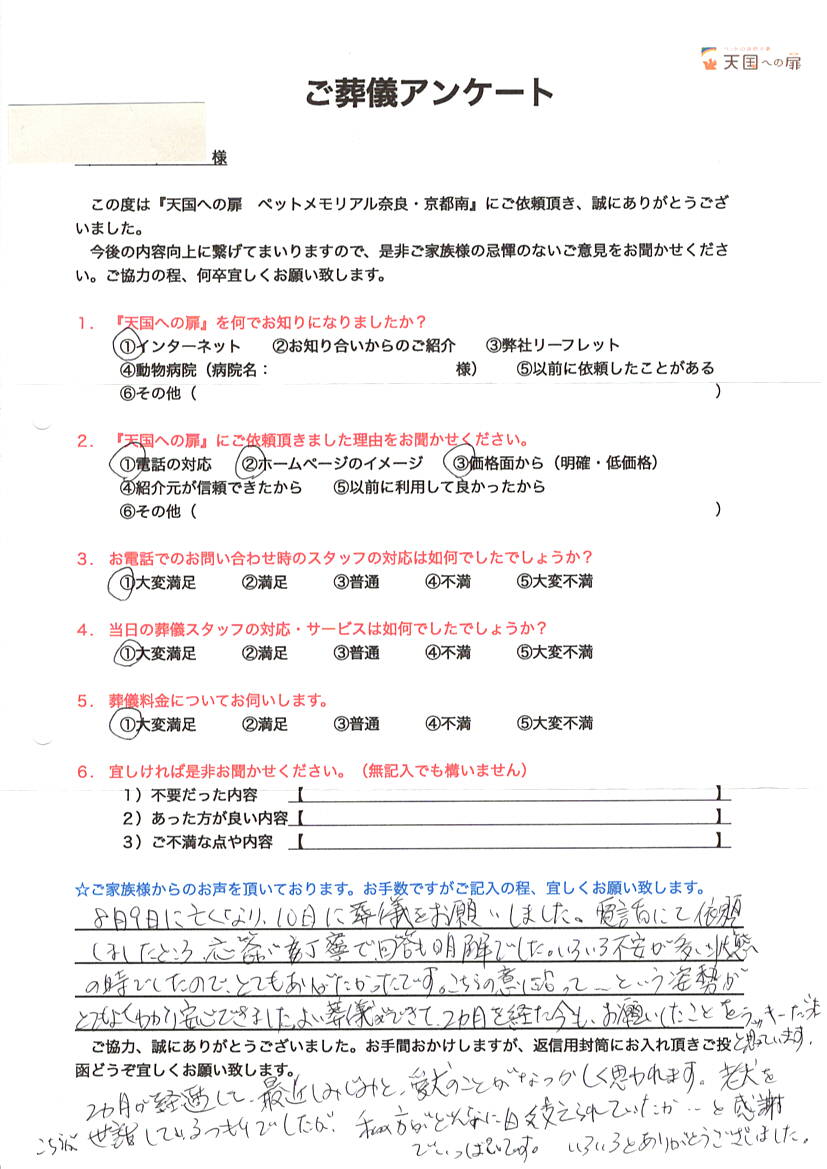 ペットのお葬式
天国への扉
ご葬儀アンケート
様
この度は『天国への扉　ペットメモリアル奈良・京都南』にご依頼頂き、誠にありがとうござ
いました。
今後の内容向上に繋げてまいりますので、是非ご家族様の忌憚のないご意見をお聞かせくださ
い。ご協力の程、何卒宜しくお願い致します。
1．『天国への扉』を何でお知りになりましたか？
①インターネット　②お知り合いからのご紹介　③弊社リーフレット
④動物病院（病院名：　様）　⑤以前に依頼したことがある
⑥その他（　）
2．『天国への扉』にご依頼頂きました理由をお聞かせください。
①電話の対応　②ホームページのイメージ　③価格面から（明確・低価格）
④紹介元が信頼できたから　⑤以前に利用して良かったから
⑥その他（　）
3．お電話でのお問い合わせ時のスタッフの対応は如何でしたでしょうか？
①大変満足　②満足　③普通　④不満　⑤大変不満
4．当日の葬儀スタッフの対応・サービスは如何でしたでしょうか？
①大変満足　②満足　③普通　④不満　⑤大変不満
5．葬儀料金についてお伺いします。
①大変満足　②満足　③普通　④不満　⑤大変不満
6．宜しければ是非お聞かせください。（無記入でも構いません）
1）不要だった内容　【　】
2）あった方が良い内容【　】
3）ご不満な点や内容　【　】
☆ご家族様からのお声を頂いております。お手数ですがご記入の程、宜しくお願い致します。
8月9日に亡くなり、10日に葬儀をお願いしました。電話にて依頼
しましたところ、応答が丁寧で、回答も明解でした。いろいろ不安が多い状態
の時でしたので、とてもありがたかったです。こちらの意に沿って…という姿勢が
とてもよくわかり安心できました。よい葬儀ができて、2カ月を経た今も、お願いしたことをラッキーだった
と思っています。
ご協力、誠にありがとうございました。お手間おかけしますが、返信用封筒にお入れ頂きご投
函どうぞ宜しくお願い致します。
2カ月が経過して、最近しみじみと、愛犬のことがなつかしく思われます。老犬を
こちらが世話しているつもりでしたが、私の方がどんなに日々支えられていたか…と感謝
でいっぱいです。いろいろとありがとうございました。